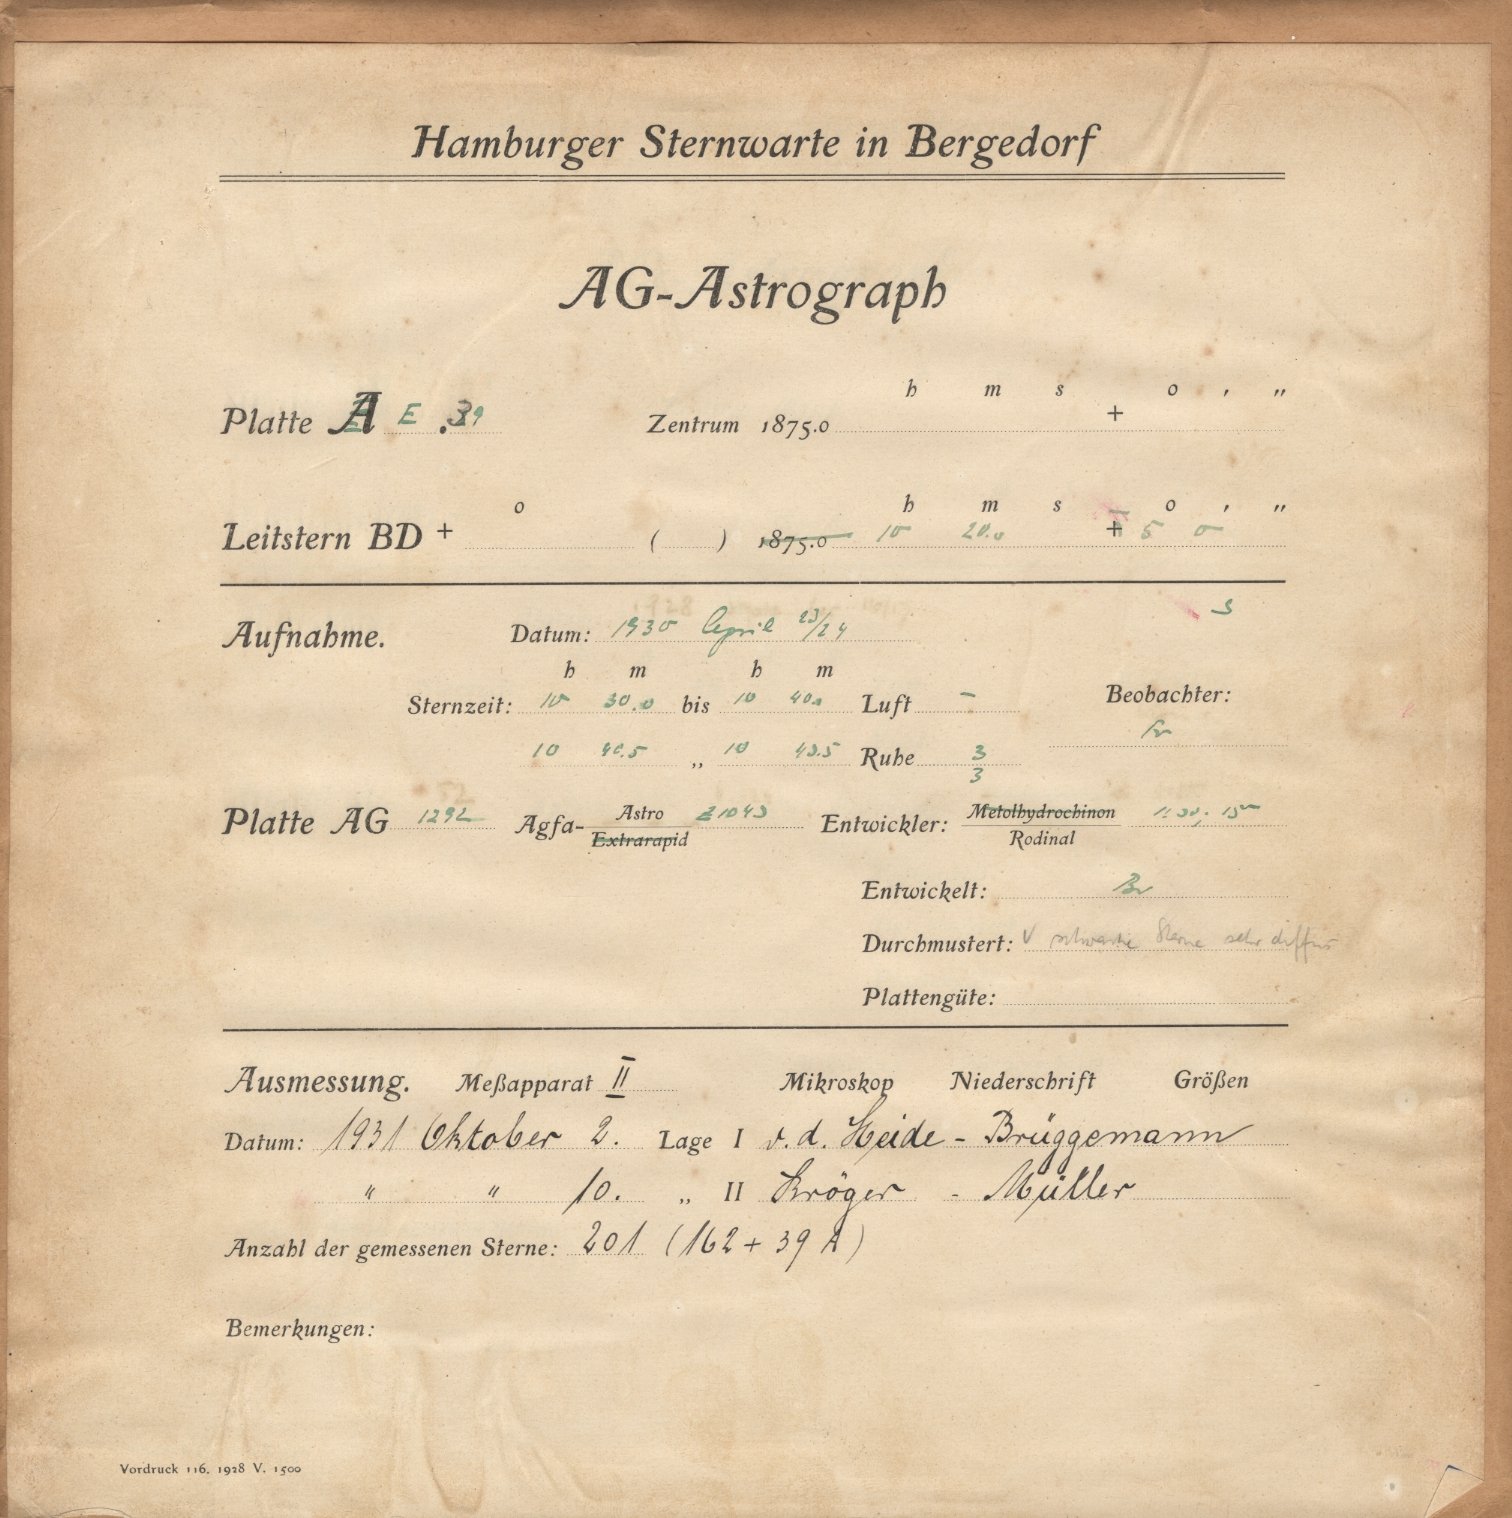 Hamburger Sternwarte in Bergedorf
AG-Astrograph
h m s o ′ ″
Platte A E .39 Zentrum 1875.0 +
o h m s o ′ ″
Leitstern BD + ( ) 1875.0 10 20.0 + 5 0
Aufnahme. Datum: 1930 April 23/24
h m h m
Sternzeit: 10 30.0 bis 10 40.0 Luft – Beobachter:
10 40.5 „ 10 43.5 Ruhe 3
3
Platte AG 1292 Agfa- Astro Z1043 Entwickler: Metolhydrochinon 1:30; 15m
Extrarapid Rodinal
Entwickelt: Br
Durchmustert: V schwache Sterne sehr diffus
Plattengüte:
Ausmessung. Meßapparat II Mikroskop Niederschrift Größen
Datum: 1931 Oktober 2. Lage I v. d. Heide - Brüggemann
" " 10. „ II Kröger - Müller
Anzahl der gemessenen Sterne: 201 (162 + 39 A)
Bemerkungen:
Vordruck 116. 1928 V. 1500